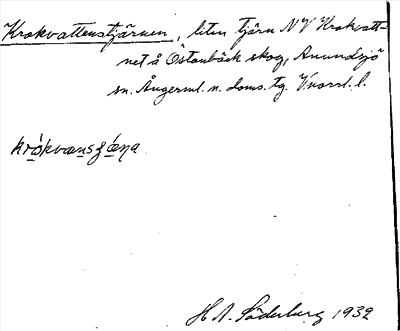 Krokvattenstjärnen, liten tjärn NV Krokvatt-
net å Östanbäck skog, Anundsjö
sn. Ångerml. n. doms. tg. V:norrl. l.
krókvænsʒǿṇa
H A. Söderberg 1932